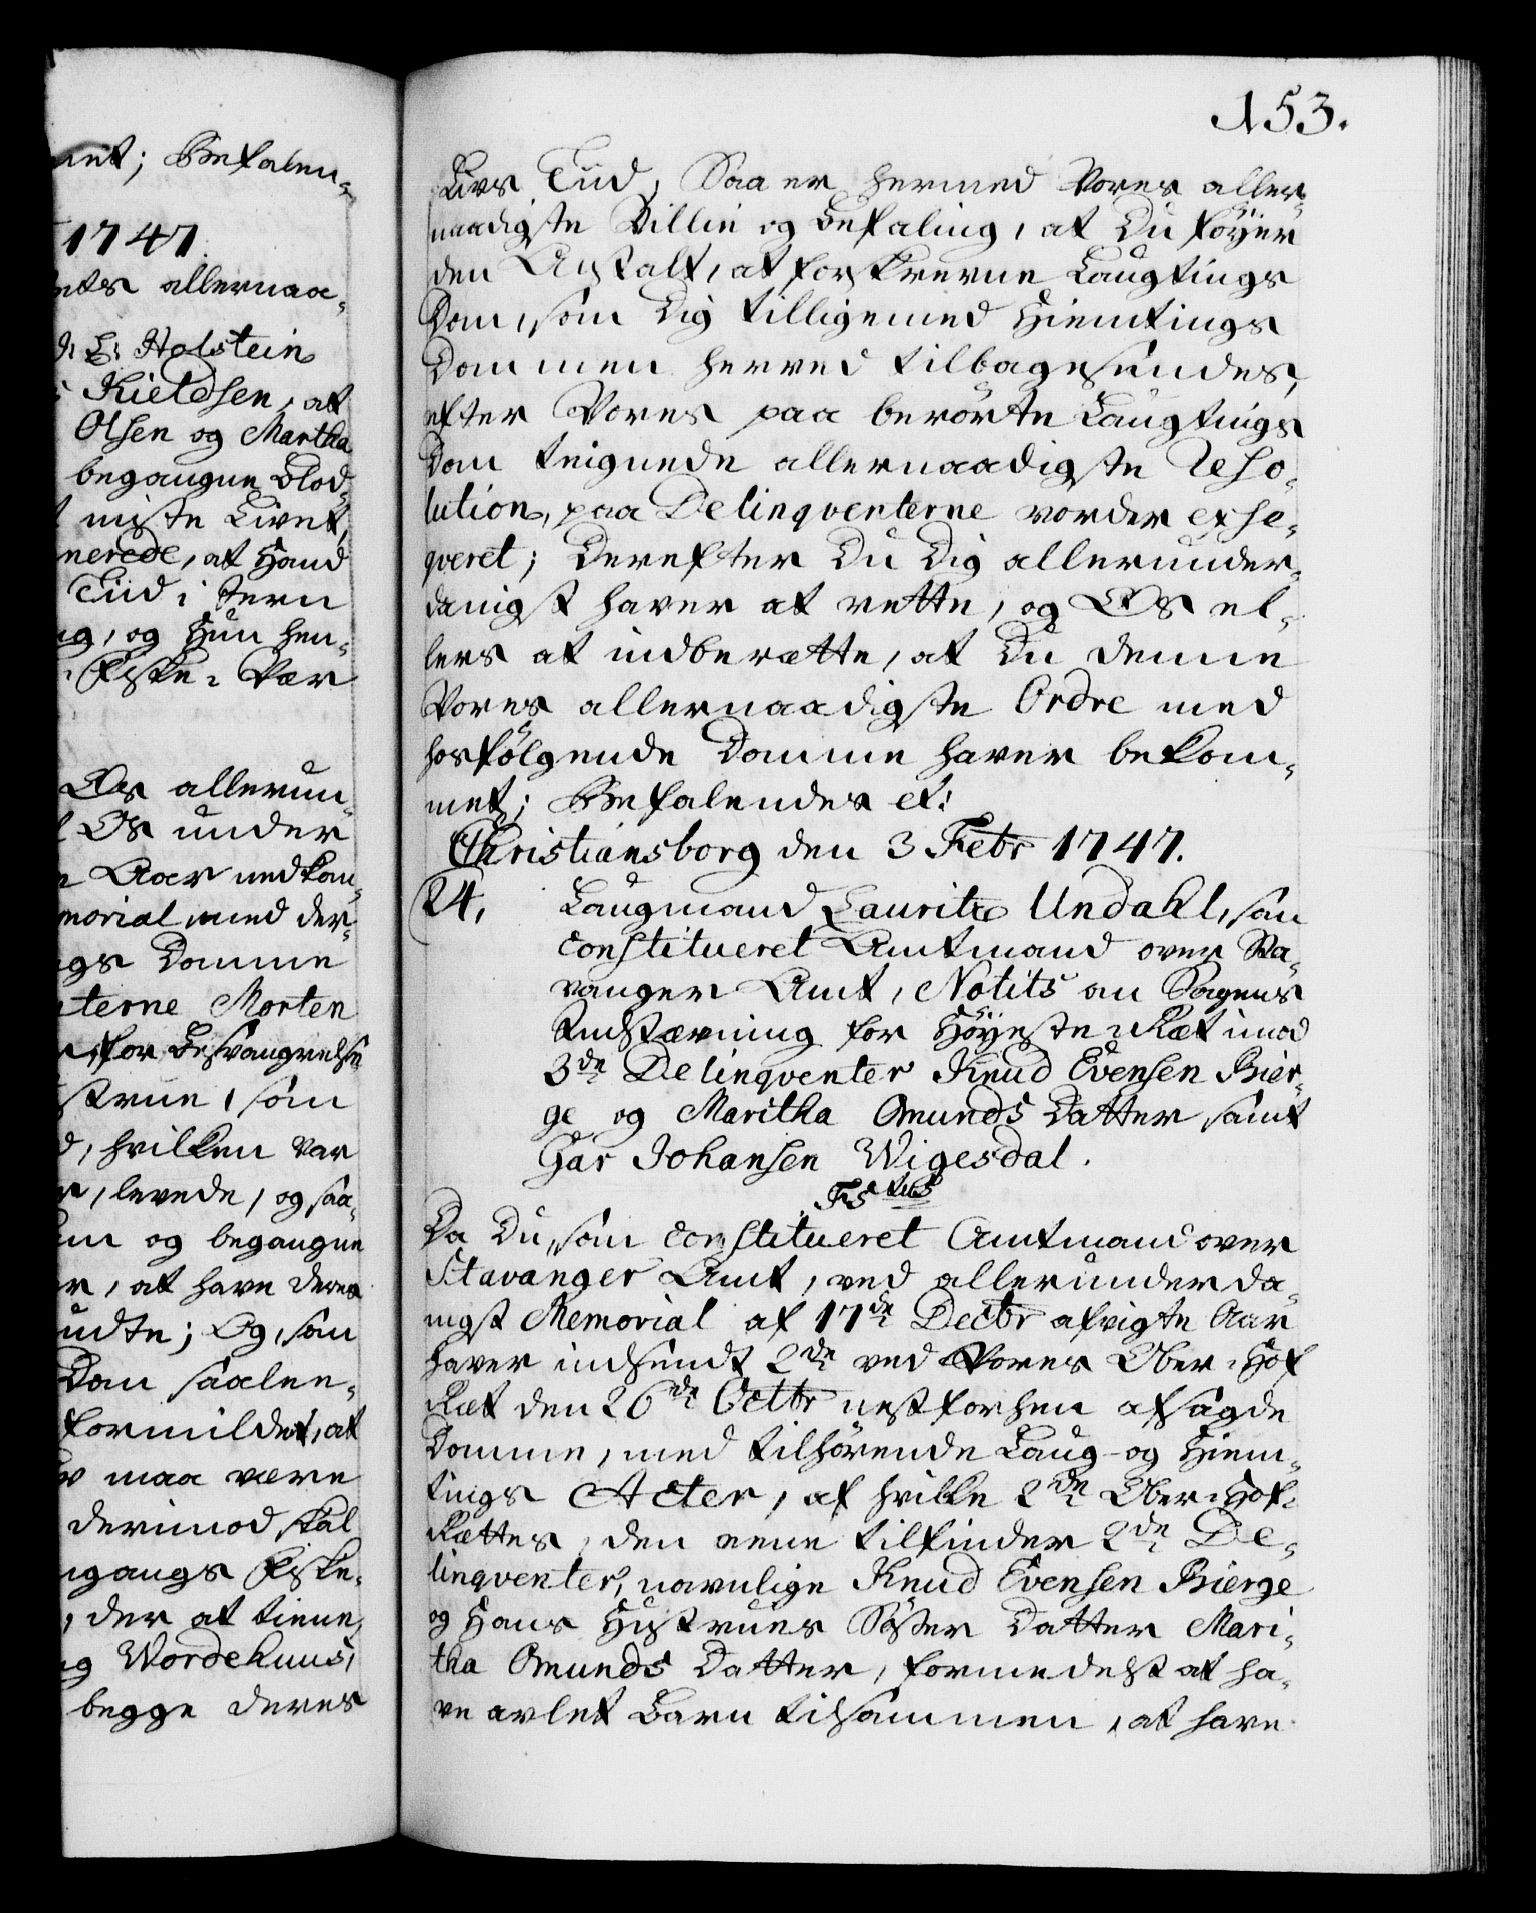 met; Befalen-
1747.
ets allernaa-
d: L: Holstein
Kieldsen, at
Olsen og Martha
begangne Blod-
miste Livet,
nerede, at Hand
Tiid i Jern
og Hun hen-
Fiske-Vær
Os allerun-
Os under
Aar nedkom-
morial, med der-
ngs Domme
terne Morten
for Besvangrelse
strue, som
d, hvilken var
levede, og saa-
og begangne
r, at have deres
udte; Og, som
Dom saalen-
formildet, at
maa være
derimod skal
ngangs Fiske-
der at tiene,
og Wordehuus,
begge deres
153.
Livs Tiid, Saa er hermed Vores aller-
naadigste Villie og Befaling, at Du föyer
den Anstalt, at forskrevne Laugtings
Dom, som Dig tilligemed Hiemtings
Dommen herved tilbagesendes,
efter Vores paa berörte Laugtings
Dom teignede allernaadigste Reso-
lution, paa Delinqventerne vorder exse-
qveret; Derefter Du Dig allerunder-
danigst haver at rette, og Os el-
lers at indberette, at Du denne
Vores allernaadigste Ordre med
hosfölgende Domme haver bekom-
met; Befalendes et:
Christiansborg den 3 Febr 1747.
24, Laugmand Lauritz Undahl, som
constitueret Amtmand over Sta-
vanger Amt, Notits om Sagens
Indstævning for Höyeste-Ræt imod
3de Delinqventer Knud Evensen Bier-
ge og Maritha Omunds Datter samt
Gar Johansen Wigesdal.
F5tus
Da Du, som constitueret Amtmand over
Stavanger Amt, ved allerunderda-
nigst Memorial af 17de Decbr afvigte Aar
haver indsendt 2de ved Vores Ober-Hof
Ræt den 26de Octbr nestforhen afsagde
Domme, med tilhörende Laug- og Hiem-
tings Acter, af hvilke 2de Ober-Hof-
Rættes, den eene tilfinder 2de De-
linqventer, navnlige Knud Evensen Bierge
og Hans Hustrues Söster Datter Mari-
tha Omunds Datter, formedelst at ha-
ve avlet Barn tilsammen, at have